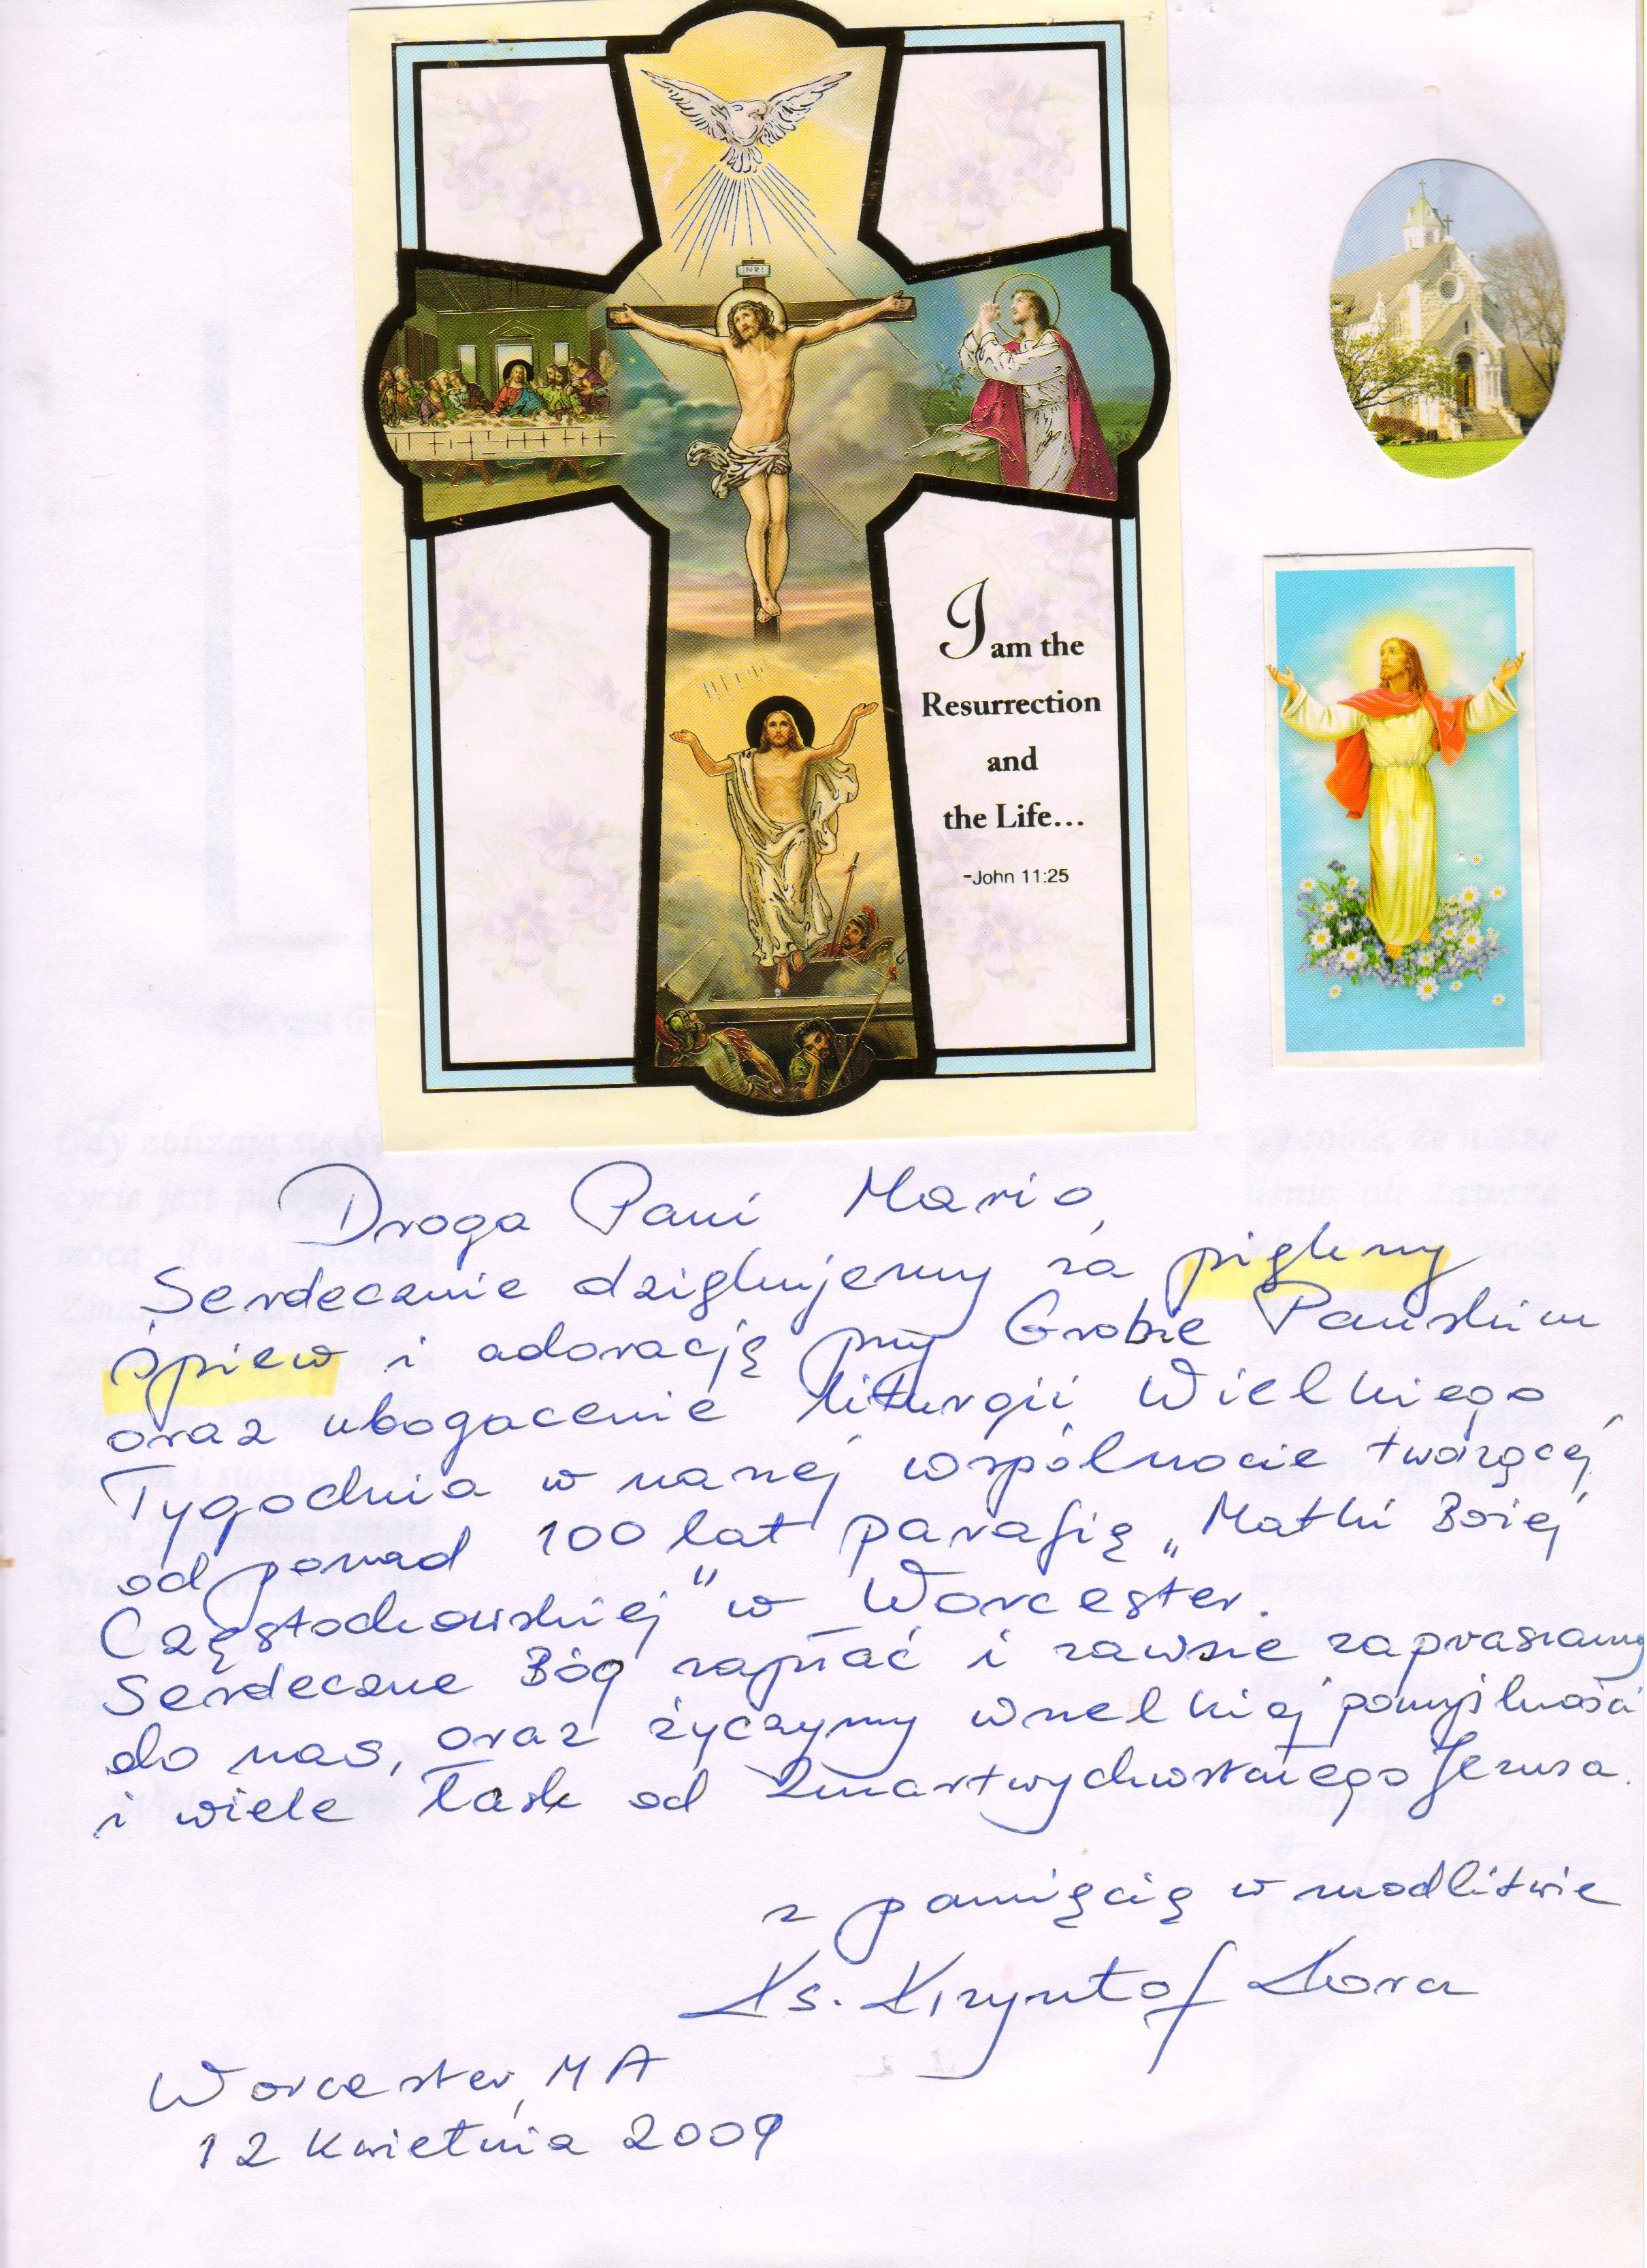 INRI
I am the
Resurrection
and
the Life...
-John 11:25
Droga Pani Mario,
Serdecznie dziękujemy za piękny
śpiew i adorację przy Grobie Pańskim
oraz ubogacenie liturgii Wielkiego
Tygodnia w naszej wspólnocie tworzącej
od ponad 100 lat parafię „Matki Bożej
Częstochowskiej" w Worcester.
Serdeczne Bóg zapłać i zawsze zapraszamy
do nas, oraz życzymy wszelkiej pomyślności
i wiele łask od Zmartwychwstałego Jezusa.
z pamięcią w modlitwie
Ks. Krzysztof Kora
Worcester, MA
12 kwietnia 2009